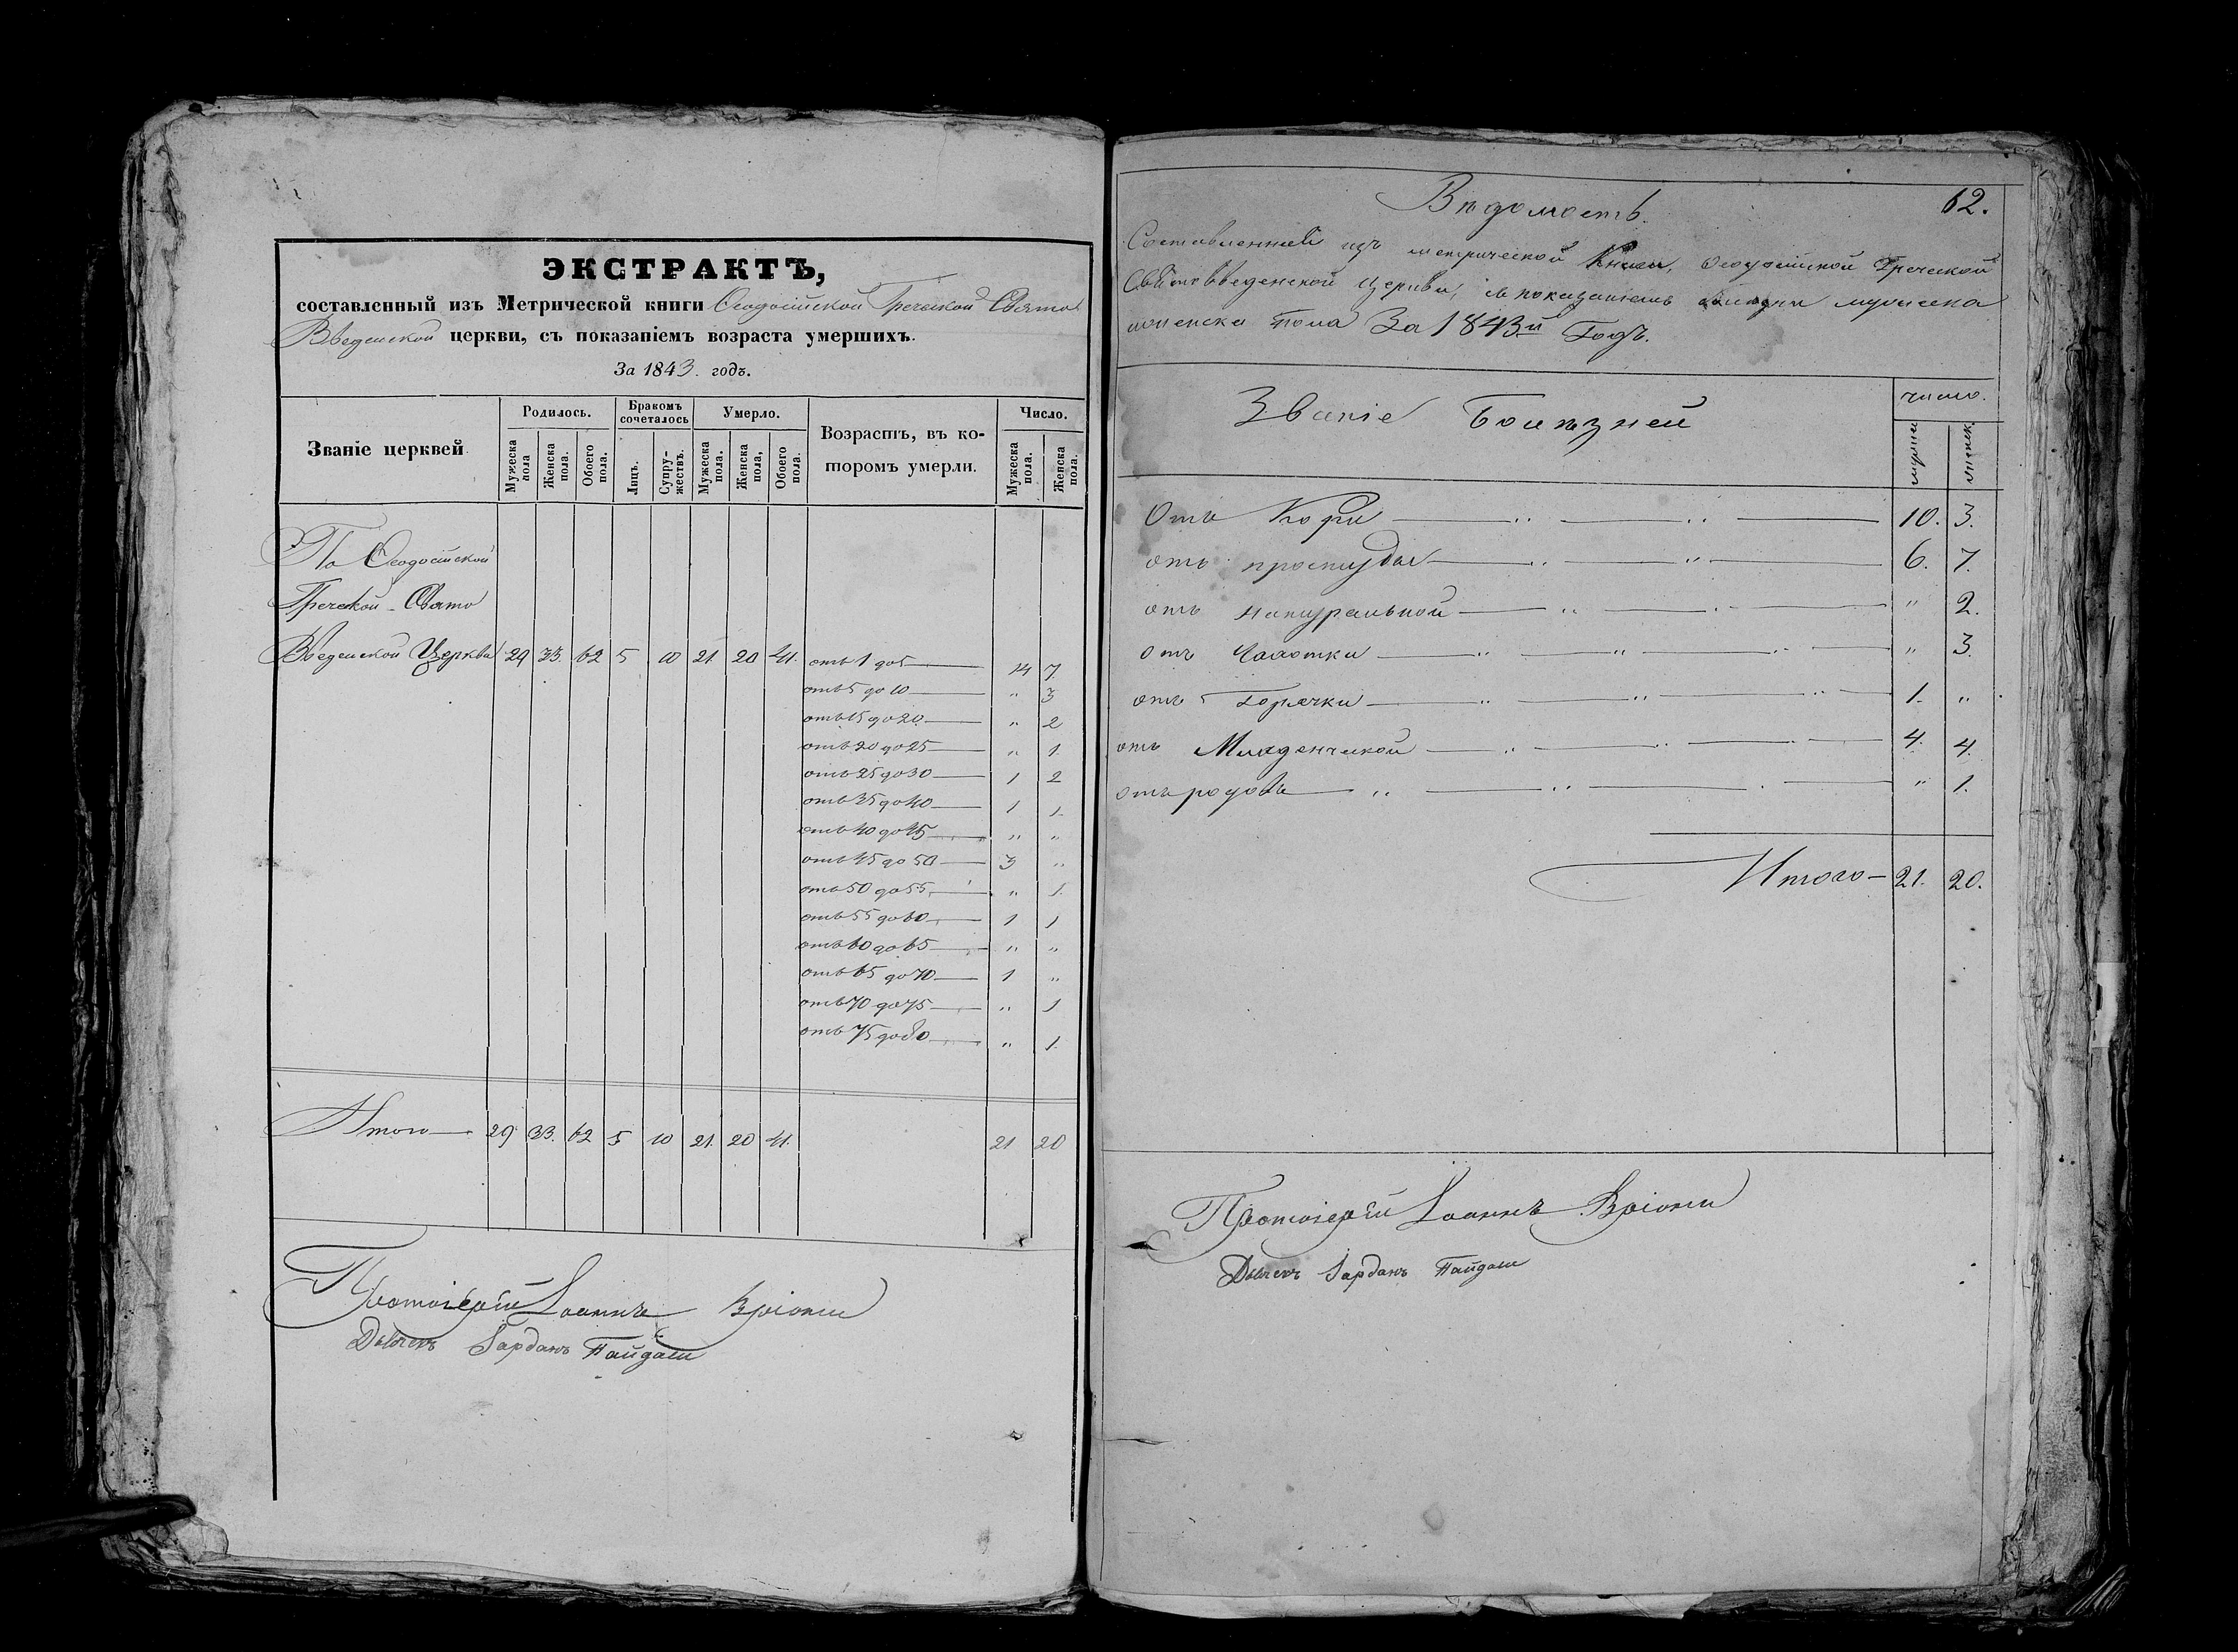 ЭКСТРАКТЪ,
составленный изъ Метрической книги Ѳеодосійской Греческой Свято
Введенской церкви, съ показаніемъ возраста умершихъ.
За 1843. годъ.
Званіе церквей. Родилось. Бракомъ сочеталось Умерло. Возрастъ, въ которомъ умерли. Число.
Мужеска пола Женска пола. Обоего пола. Лицъ. Супружествъ. Мужеска пола, Женска пола, Обоего пола. Мужеска пола. Женска пола.
По Ѳеодосійской
Греческой Свято
Введенской Церкви 29 33. 62 5 10 21. 20 41. отъ 1 до 5 14 7.
отъ 5 до 10 " 3
отъ 15 до 20 " 2
отъ 20 до 25 " 1.
отъ 25 до 30 1 2
отъ 35 до 40 1 1.
отъ 40 до 45 " "
отъ 45 до 50 3 "
отъ 50 до 55 " 1.
отъ 55 до 60 1 1
отъ 60 до 65 " "
отъ 65 до 70 1 "
отъ 70 до 75 " 1
отъ 75 до 80 " 1.
Итого 29 33. 62 5 10 21. 20 41. 21 20
Протоіерей Іоаннъ
Дьячекъ
62.
Вѣдомость.
Составленная изъ метрической Книги, Ѳеодосійской Греческой
Святовведенской Церкви, съ показаніемъ мужеска
женска пола За 1843й Годъ.
Званіе Болѣзней число.
мужеск женск.
Отъ Кори 10. 3.
отъ простуды 6. 7.
отъ натуральной " 2.
отъ Чахотки " 3.
отъ Горячки 1. "
отъ Младенческой 4. 4.
отъ родовъ " 1.
Итого 21. 20.
Протоіерей Іоаннъ
Дьячекъ